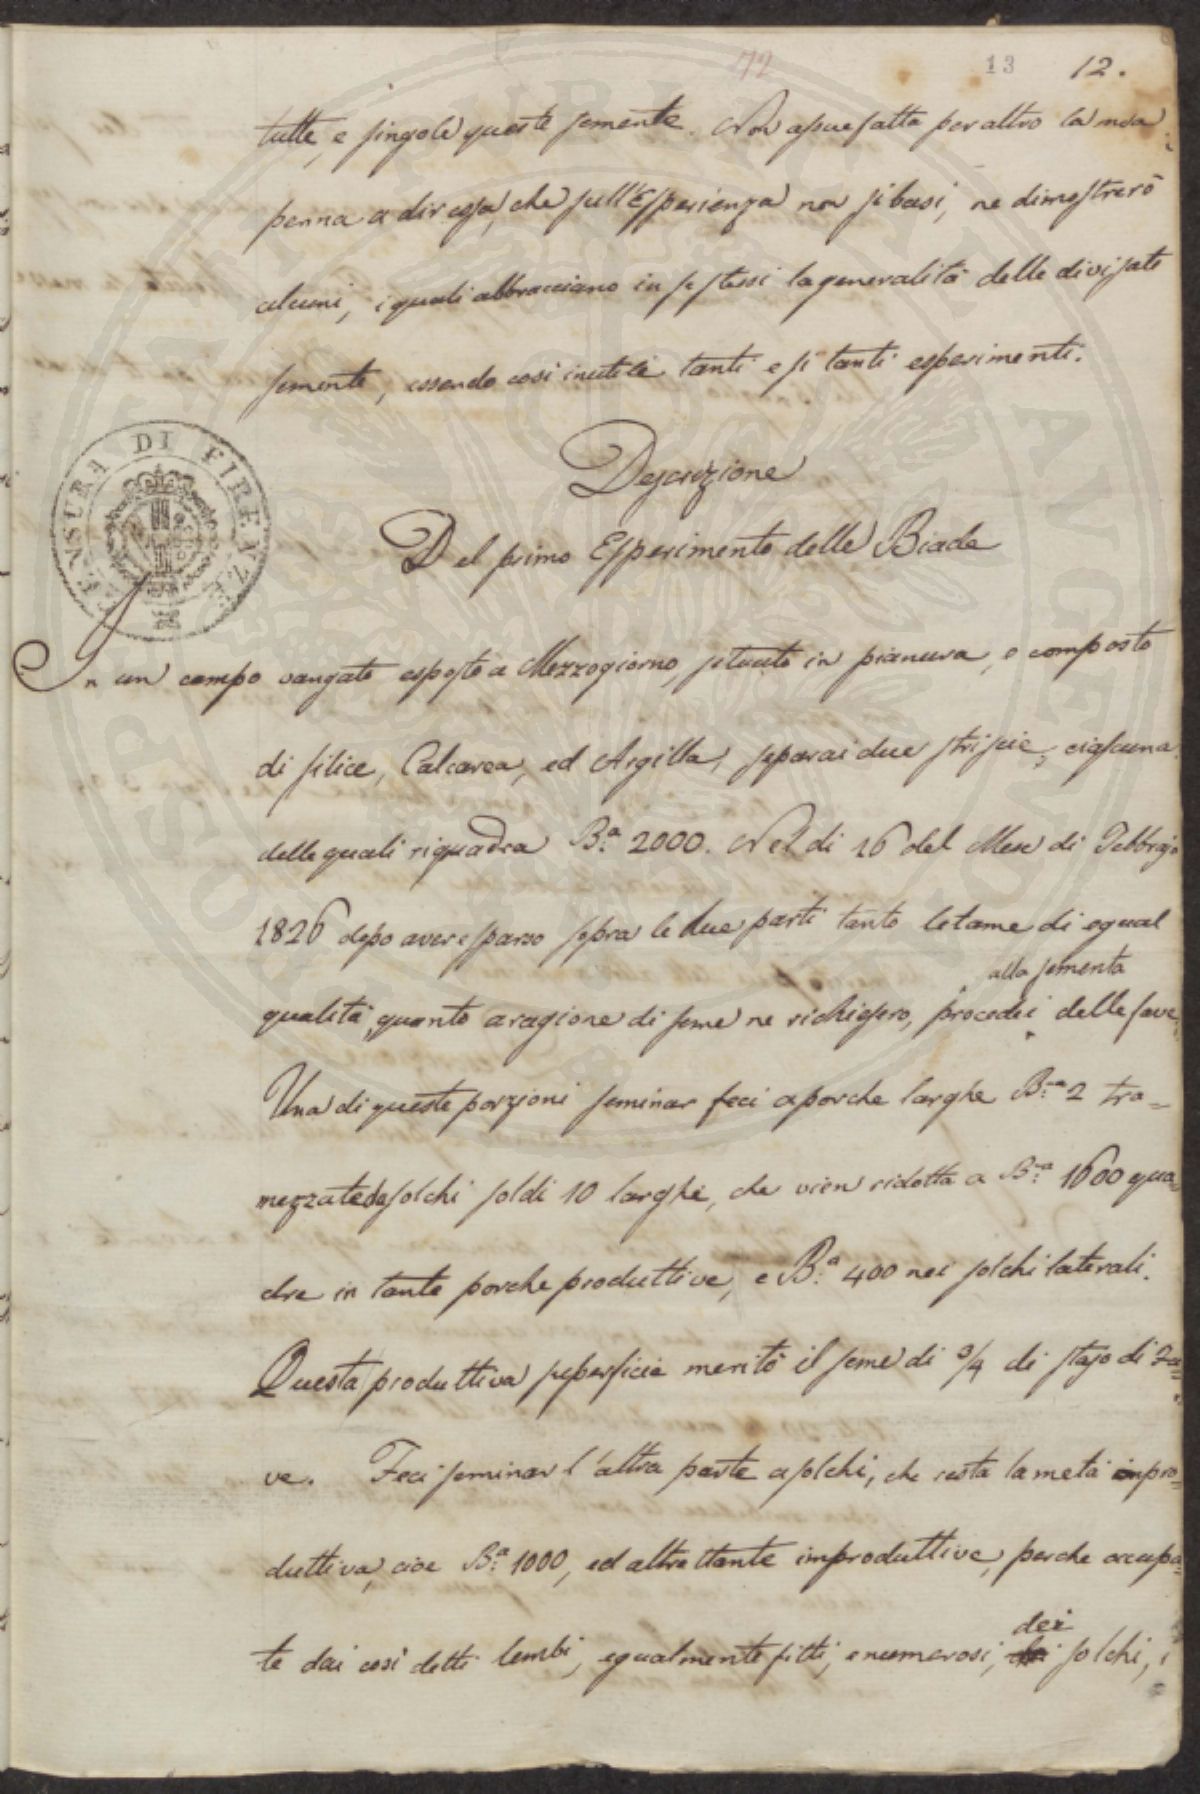 72 13 12.
tutte, e singole queste semente. Non assuefatta per altro la mia
penna a dir cosa, che sull'Esperienza non si basi, ne dimostrerò
alcuni, i quali abbracciano in se stessi la generalità delle divisate
semente, essendo così inutile tanti e sì tanti esperimenti.
Descrizione
Del primo Esperimento delle Biade
In un campo vangato esposto a Mezzogiorno, situato in pianura, e composto
di silice, Calcarea, ed Argilla, separai due striscie, ciascuna
delle quali riquadra B.a 2000. Nel dì 16 del Mese di Febbrajo
1826 dopo aver sparso sopra le due parti tanto letame di egual
alla sementa
qualità, quanto a ragione di seme ne richiesero, procedei delle fave.
Una di queste porzioni seminar feci a porche larghe B.a 2 tra=
mezzate da solchi soldi 10 larghi, che vien ridotta a B.a 1600 qua=
dre in tante porche produttive, e B.a 400 nei solchi laterali.
Questa produttiva superficie meritò il seme di 3/4 di stajo di Fa=
ve. Feci seminar l'altra parte a solchi, che resta la metà inpro=
duttiva, cioe B.a 1000, ed altrettante improduttive, perche occupa=
te dai così detti lembi, egualmente fitti, e numerosi, dei solchi, i
CENSURA DI FIRENZE